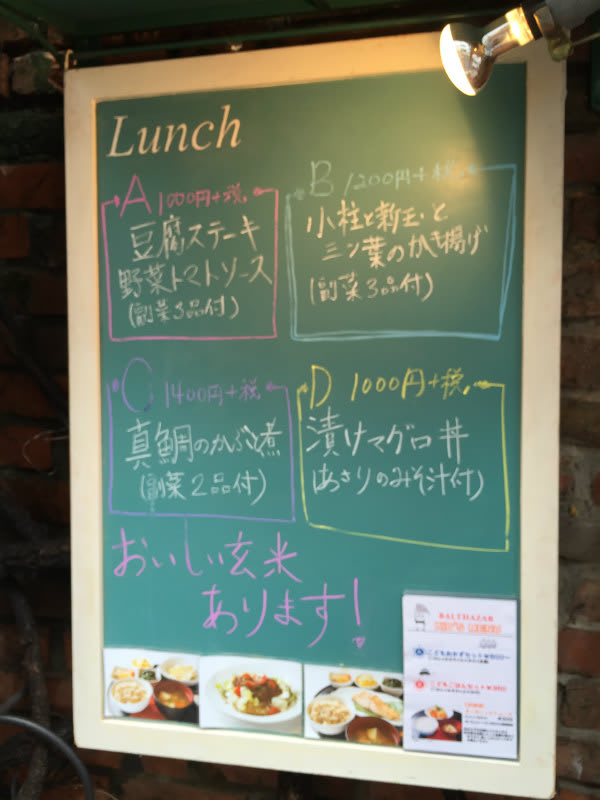 Lunch
A 1000円+税
豆腐ステーキ
野菜トマトソース
(副菜3品付)
B 1200円+税
小柱と新玉と
三ッ葉のかき揚げ
(副菜3品付)
C 1400円+税
真鯛のかぶと煮
(副菜2品付)
D 1000円+税
漬けマグロ丼
(あさりのみそ汁付)
おいしい玄米
あります!
BALTHAZAR
KID'S MENU